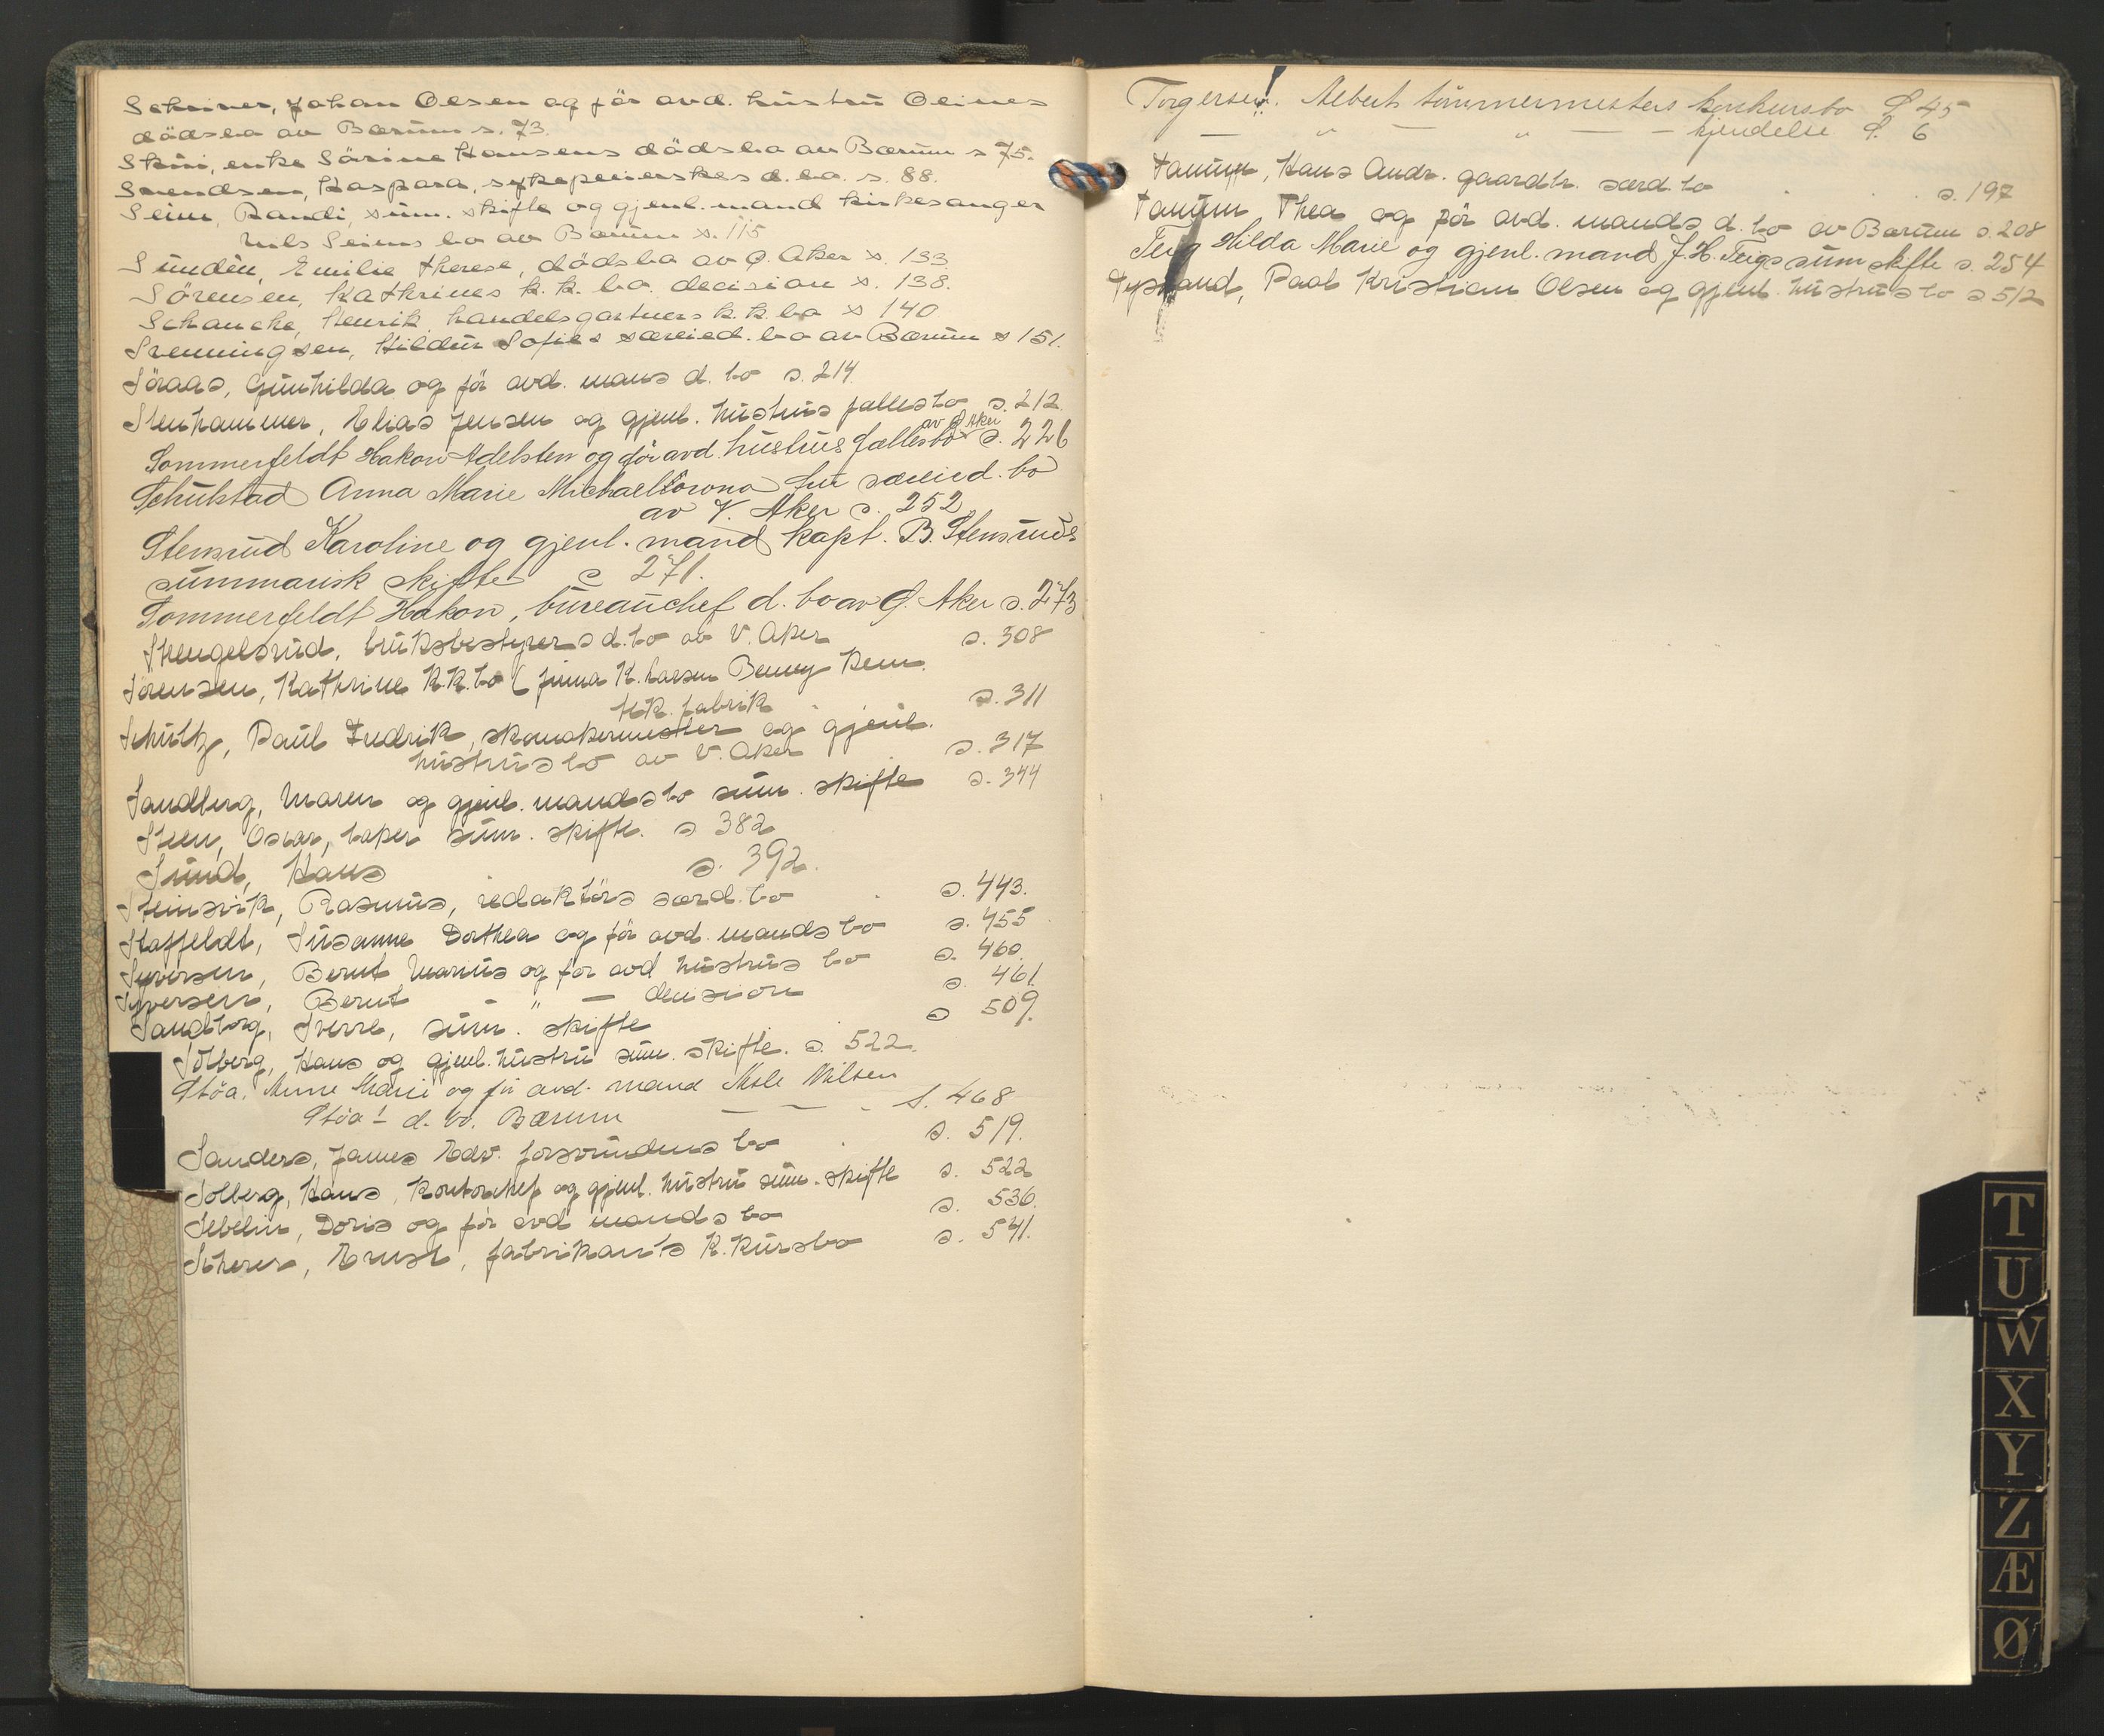 Schiver, Johan Olsen og för avd. hustru Oeines
dödsbo av Bærum s. 73.
Skui, enke Sörine Hansens dödsbo av Bærum s 75.
Svendsen, Kaspara, sykepleierskes d. bo. s. 88.
Seim, Randi, sum. skifte og gjenl. mand kirkesanger
Nils Seims bo av Bærum s. 115
Sundén, Emilie Therese, dödsbo av Ø. Aker s. 133
Sörensen, Kathrines k.k. bo. decision s. 138.
Schancke, Henrik handelsgartners k.k. bo s 140
Svenningsen, Hildur Sofies særeied. bo av Bærum s 151.
Söraas, Gunhilda og för avd. mans d. bo s. 214.
Stenhammer, Elias Jensen og gjenl. hustrus fællesbo s. 212
Sommerfeldt Hakon Adelsten og för avd. hustrus fællesbo av Ø Aker s. 226
Schulstad Anna Marie Michael fru særeied. bo
av V. Aker s. 252
Stensrud Karoline og gjenl. mand kapt. B. Stensruds
summarisk skifte s 271.
Sommerfeldt Hakon, bureauchef d. bo av Ø. Aker s. 273
Stengelsrud, bruksbestyrers d. bo av V. Aker s. 308
Sörensen, Kathrine K.K. bo (firma K. Larsen Benney Kem.
tek. fabrik s. 311
Schultz, Paul Fredrik, skomakermester og gjenl.
hustrus bo av V. Aker s. 317
Sandberg, Maren og gjenl. mands bo sum. skifte s. 344
Steen, Oscar, baker sum. skifte. s 382
Sund, Hans s. 392.
Steinsvik, Rasmus, redaktörs særd. bo s. 443.
Staffeldt, Susanne Dorthea og för avd. mands bo s. 455
Syversen, Bernt Marius og för avd hustrus bo s. 460.
Syversen, Bernt - " - decision s. 461.
Sandborg, Sverre, sum. skifte s 509.
Solberg, Hans og gjenl. hustru sum. skifte. s. 522.
Stöa, Anne Marie og för avd. mand Nils Nilsen
Stöa's d. bo. Bærum - - - s. 468
Sanders, James Edv. forsvundens bo s. 519.
Solberg, Hans, Kontorchef og gjenl. hustru sum. skifte s. 522
Sebelin, Doris og för avd mands bo s. 536.
Scherer, Ernst, fabrikants K.kursbo s. 541.
Torgersen. Albert tömmermesters konkursbo S 45
— " — " — — kjendelse S. 6
Tanum, Hans Andr. gaardbr. særd. bo s. 197
Tanum Thea og för avd. mands d. bo av Bærum s. 208
Teig Hilda Marie og gjenl. mand J. H. Teigs sum skifte s. 254
Tystrand, Paal Kristian Olsen og gjenl. hustrus bo s 512
T
U
W
X
Y
Z
Æ
Ø